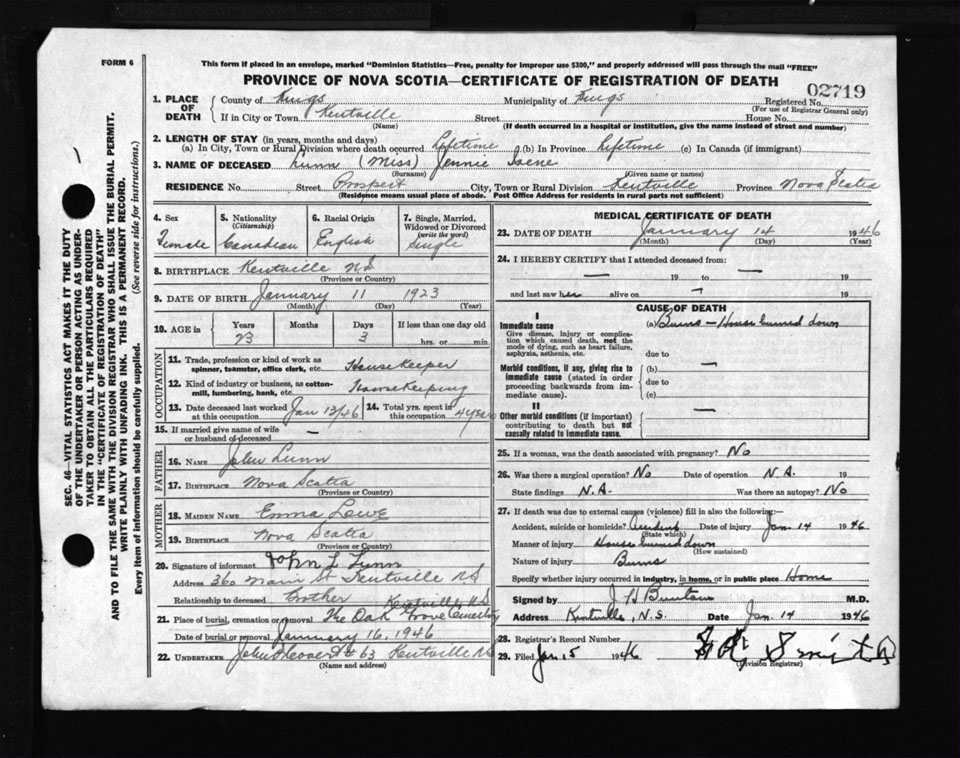 FORM 6
This form if placed in an envelope, marked "Dominion Statistics—Free, penalty for improper use $300," and properly addressed will pass through the mail "FREE"
PROVINCE OF NOVA SCOTIA—CERTIFICATE OF REGISTRATION OF DEATH
02719
1. PLACE OF DEATH
County of Kings Municipality of Kings Registered No.
(For use of Registrar General only)
If in City or Town Kentville Street House No.
(Name) (If death occurred in a hospital or institution, give the name instead of street and number)
2. LENGTH OF STAY (in years, months and days)
(a) In City, Town or Rural Division where death occurred Lifetime (b) In Province Lifetime (c) In Canada (if immigrant)
3. NAME OF DECEASED Lunn (Miss) Jennie Irene
(Surname) (Given name or names)
RESIDENCE No. Street Prospect City, Town or Rural Division Kentville Province Nova Scotia
(Residence means usual place of abode. Post Office Address for residents in rural parts not sufficient)
4. Sex
Female
5. Nationality
(Citizenship)
Canadian
6. Racial Origin
English
7. Single, Married, Widowed or Divorced
(write the word)
Single
8. BIRTHPLACE Kentville NS
(Province or Country)
9. DATE OF BIRTH January 11 1923
(Month) (Day) (Year)
10. AGE in
Years Months Days If less than one day old
23 3 hrs. or min.
OCCUPATION
11. Trade, profession or kind of work as spinner, teamster, office clerk, etc. Housekeeper
12. Kind of industry or business, as cotton-mill, lumbering, bank, etc. Housekeeping
13. Date deceased last worked at this occupation Jan 13/46
14. Total yrs. spent in this occupation 4 years
15. If married give name of wife or husband of deceased —
FATHER
16. NAME John Lunn
17. BIRTHPLACE Nova Scotia
(Province or Country)
MOTHER
18. MAIDEN NAME Emma Lowe
19. BIRTHPLACE Nova Scotia
(Province or Country)
20. Signature of informant John L Lunn
Address 360 Main St Kentville NS
Relationship to deceased Brother
21. Place of burial, cremation or removal The Oak Grove Cemetery Kentville NS
Date of burial or removal January 16, 1946
22. UNDERTAKER 63 Kentville NS
(Name and address)
MEDICAL CERTIFICATE OF DEATH
23. DATE OF DEATH January 14 1946
(Month) (Day) (Year)
24. I HEREBY CERTIFY that I attended deceased from:
— 19 to — 19
and last saw her alive on — 19
CAUSE OF DEATH
I
Immediate cause (a) Burns — House burned down
Give disease, injury or complication which caused death, not the mode of dying, such as heart failure, asphyxia, asthenia, etc.
due to
Morbid conditions, if any, giving rise to immediate cause (stated in order proceeding backwards from immediate cause).
(b) —
due to
(c)
II
Other morbid conditions (if important) contributing to death but not causally related to immediate cause.
—
25. If a woman, was the death associated with pregnancy? No
26. Was there a surgical operation? No Date of operation N.A. 19
State findings N.A. Was there an autopsy? No
27. If death was due to external causes (violence) fill in also the following:—
Accident, suicide or homicide? Accident Date of injury Jan 14 1946
(State which)
Manner of injury House burned down
(How sustained)
Nature of injury Burns
Specify whether injury occurred in industry, in home, or in public place Home
Signed by J H M.D.
Address Kentville, N.S. Date Jan. 14 1946
28. Registrar's Record Number
29. Filed Jan 15 1946
(Division Registrar)
SEC. 46—VITAL STATISTICS ACT MAKES IT THE DUTY OF THE UNDERTAKER OR PERSON ACTING AS UNDERTAKER TO OBTAIN ALL THE PARTICULARS REQUIRED IN THE "CERTIFICATE OF REGISTRATION OF DEATH" AND TO FILE THE SAME WITH THE DIVISION REGISTRAR WHO SHALL ISSUE THE BURIAL PERMIT.
WRITE PLAINLY WITH UNFADING INK. THIS IS A PERMANENT RECORD.
Every item of information should be carefully supplied. (See reverse side for instructions.)